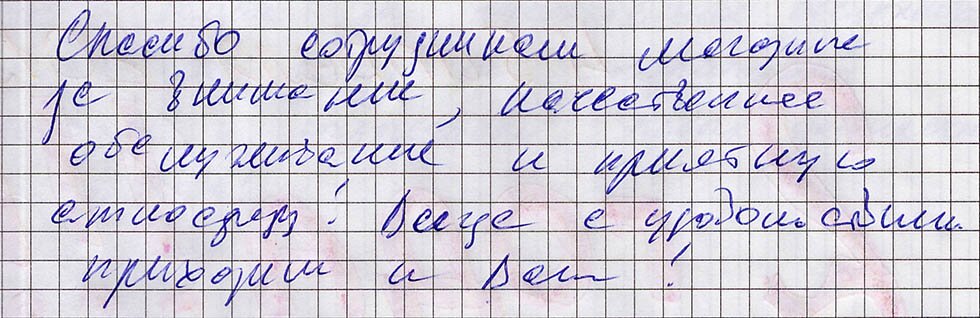 Спасибо сотрудникам магазина
за внимание, качественное
обслуживание и приятную
атмосферу! Всегда с удовольствием
приходим к Вам!